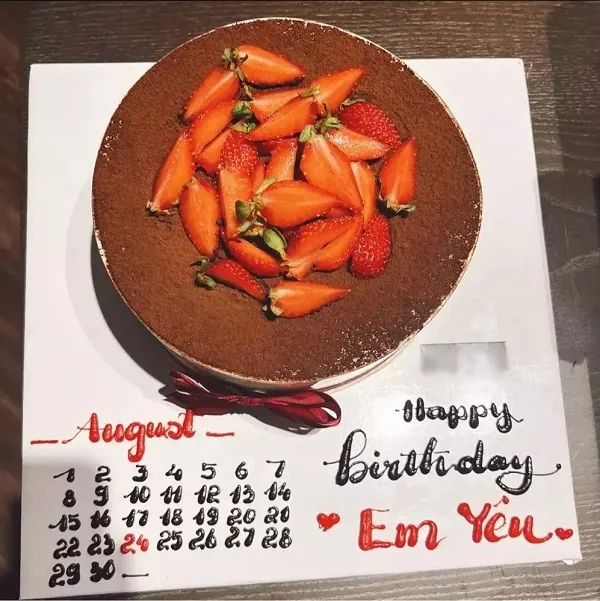 — August —
1 2 3 4 5 6 7
8 9 10 11 12 13 14
15 16 17 18 19 20 21
22 23 24 25 26 27 28
29 30 —
Happy
birthday
Em Yêu